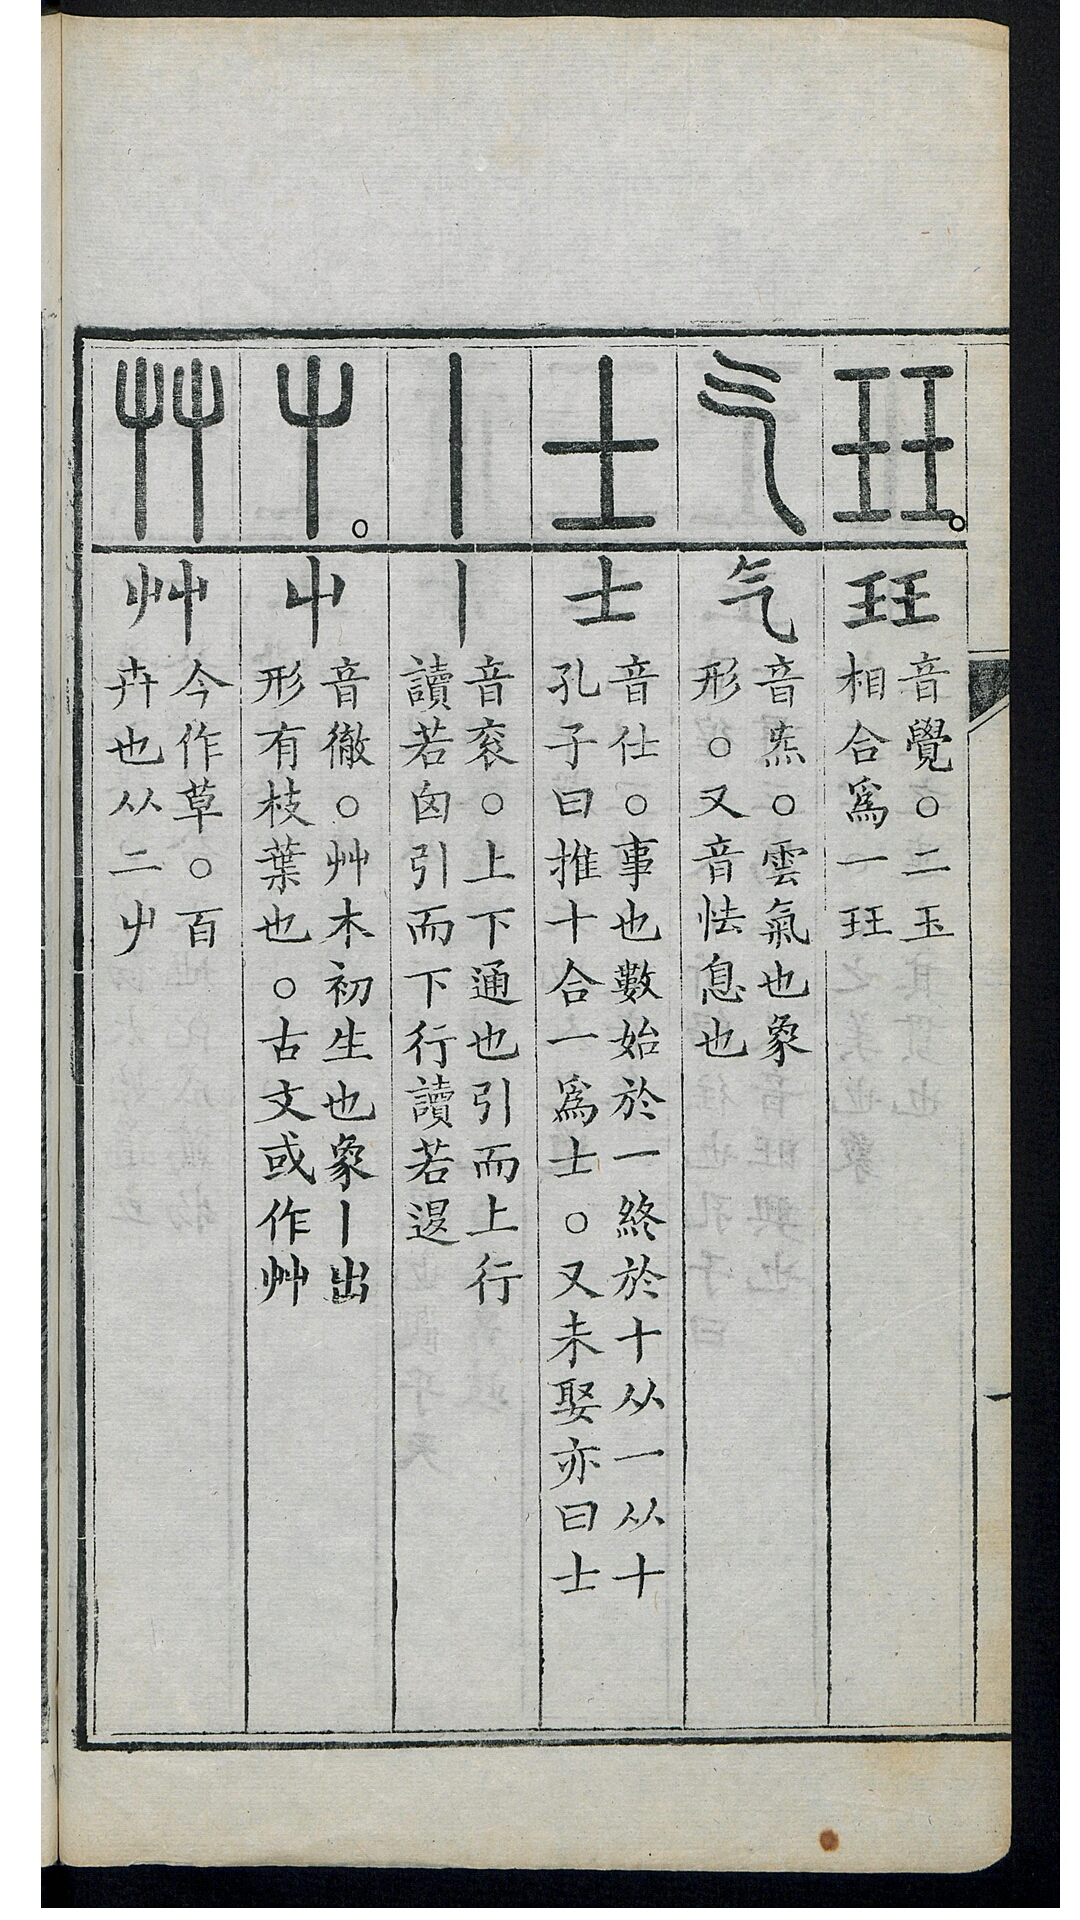 玨
玨
音覺○二玉
相合爲一玨
气
气
音炁○雲氣也象
形○又音怯息也
士
士
音仕○事也數始於一終於十从一从十
孔子曰推十合一爲士○又未娶亦曰士
丨
丨
音衮○上下通也引而上行
讀若囟引而下行讀若𨓤
屮
屮
音徹○艸木初生也象丨出
形有枝葉也○古文或作艸
艸
艸
今作草○百
卉也从二屮
一